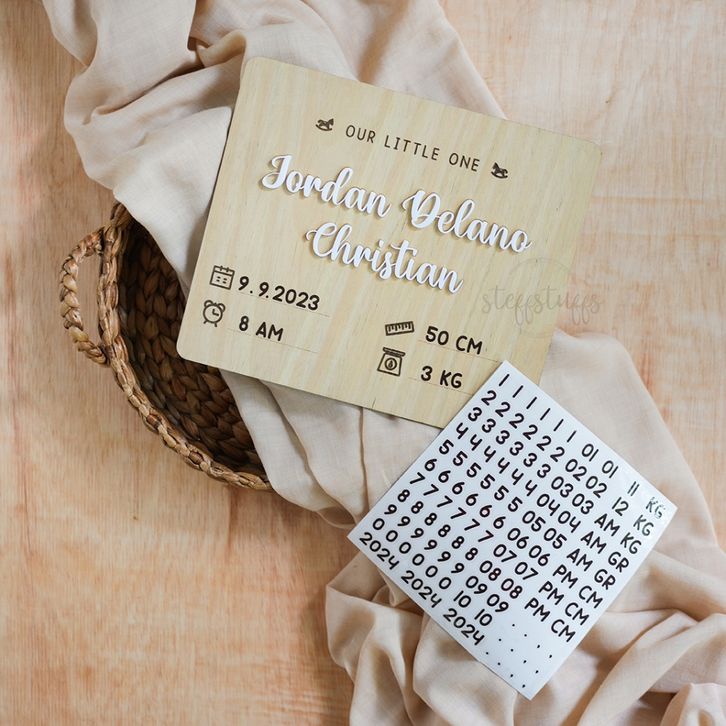 OUR LITTLE ONE
Jordan Delano
Christian
9.9.2023
8 AM
50 CM
3 KG
steffstuffs
1 1 1 1 1 1 01 01 11 KG
2 2 2 2 2 2 02 02 12 KG
3 3 3 3 3 3 03 03 AM KG
4 4 4 4 4 4 04 04 AM GR
5 5 5 5 5 5 05 05 AM GR
6 6 6 6 6 6 06 06 PM CM
7 7 7 7 7 7 07 07 PM CM
8 8 8 8 8 8 08 08 PM CM
9 9 9 9 9 9 09 09 . . . .
0 0 0 0 0 0 10 10 . . . .
2024 2024 2024 2024